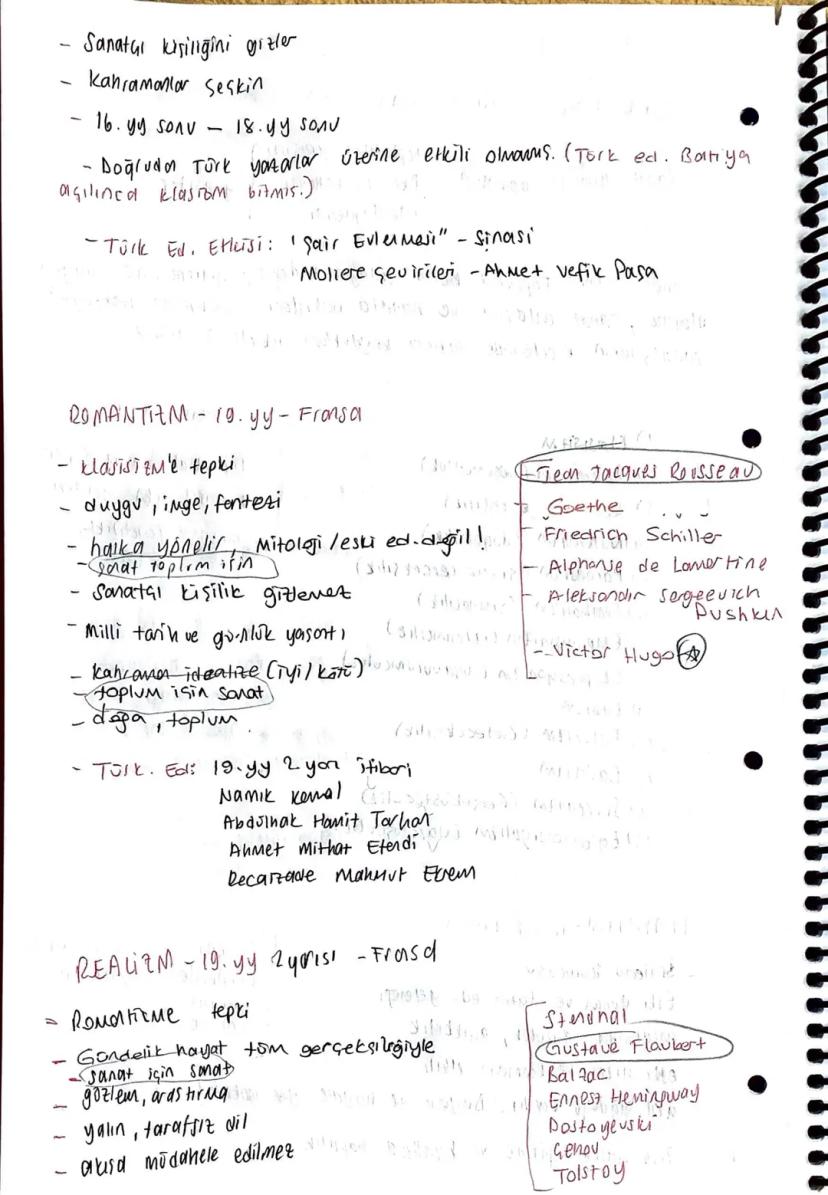 - Sanatçı kişiliğini gizler
- Kahramanlar seçkin
- 16. yy sonu - 18. yy sonu
- Doğrudan Türk yazarlar üzerine etkili olmamış. (Türk ed. Batıya
açılınca klasizm bitmiş.)
- Türk Ed. Etkisi: "Şair Evlenmesi" - Şinasi
Moliere çevirileri - Ahmet Vefik Paşa
ROMANTİZM - 19. yy - Fransa
- Klasisizm'e tepki
- duygu, imge, fantezi
- halka yönelir, Mitoloji / eski ed. değil!
- sanat toplum için
- Sanatçı kişilik gizlemez
- Milli tarih ve günlük yaşantı
- kahraman idealize (iyi / kötü)
- toplum için sanat
- doğa, toplum
- Türk. Ed: 19. yy 2 yarı itibari
Namık Kemal
Abdülhak Hamit Tarhan
Ahmet Mithat Efendi
Recaizade Mahmut Ekrem
- Jean Jacques Rousseau
- Goethe
- Friedrich Schiller
- Alphonse de Lamartine
- Aleksandr Sergeevich
Pushkin
- Victor Hugo
REALİZM - 19. yy 2 yarısı - Fransa
- Romantizme tepki
- Gündelik hayat tüm gerçekçiliğiyle
- sanat için sanat
- gözlem, araştırma
- yalın, tarafsız dil
- akışa müdahele edilmez
Stendhal
Gustave Flaubert
Balzac
Ernest Hemingway
Dostoyevski
Çehov
Tolstoy